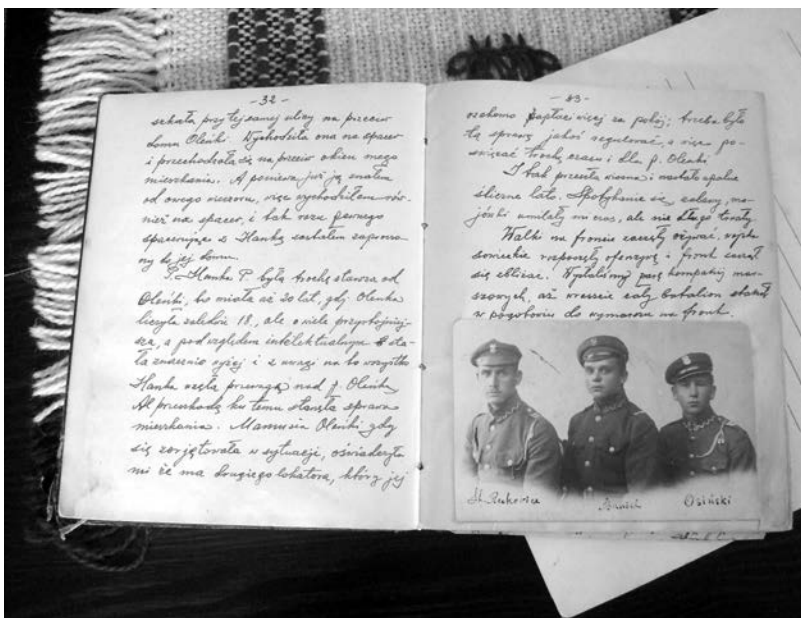 - 32 -
szkała przy tej samej ulicy na przeciw
domu Oleńki. Wychodziła ona na spacer
i przechodziła się na przeciw okien mego
mieszkania. A ponieważ już ją znałem
od owego wieczoru, więc wychodziłem rów-
nież na spacer, i tak razu pewnego
spacerując z Hanką zostałem zaproszo-
ny do jej domu.
P. Hanka P. była trochę starsza od
Oleńki, bo miała aż 20 lat, gdy Oleńka
liczyła zaledwie 18, ale o wiele przystojniej-
sza, a pod względem intelektualnym sta-
ła znacznie wyżej i z uwagi na to wszystko
Hanka wzięła przewagę nad p. Oleńką
Al przeszkodą ku temu stanęła sprawa
mieszkania. Mamusia Oleńki gdy
się zorjętowała w sytuacji, oświadczyła
mi że ma drugiego lokatora, który jej
- 33 -
rzekomo zapłaci więcej za pokój; trzeba było
tą sprawę jakoś regulować, a więc po-
święcać trochę czasu i dla p. Oleńki
I tak przeszła wiosna i nastało upalne
śliczne lato. Spotykanie się, zabawy, ma-
jówki umilały mi czas, ale nie długo trwały
Walki na froncie zaczęły ożywać, wojska
sowieckie rozpoczęły ofenzywę i front zaczął
się zbliżać. Wysłaliśmy parę kompanij mar-
szowych, aż wreszcie cały batalion stanął
w pogotowiu do wymarszu na front.
St. Rukowicz
Osiński